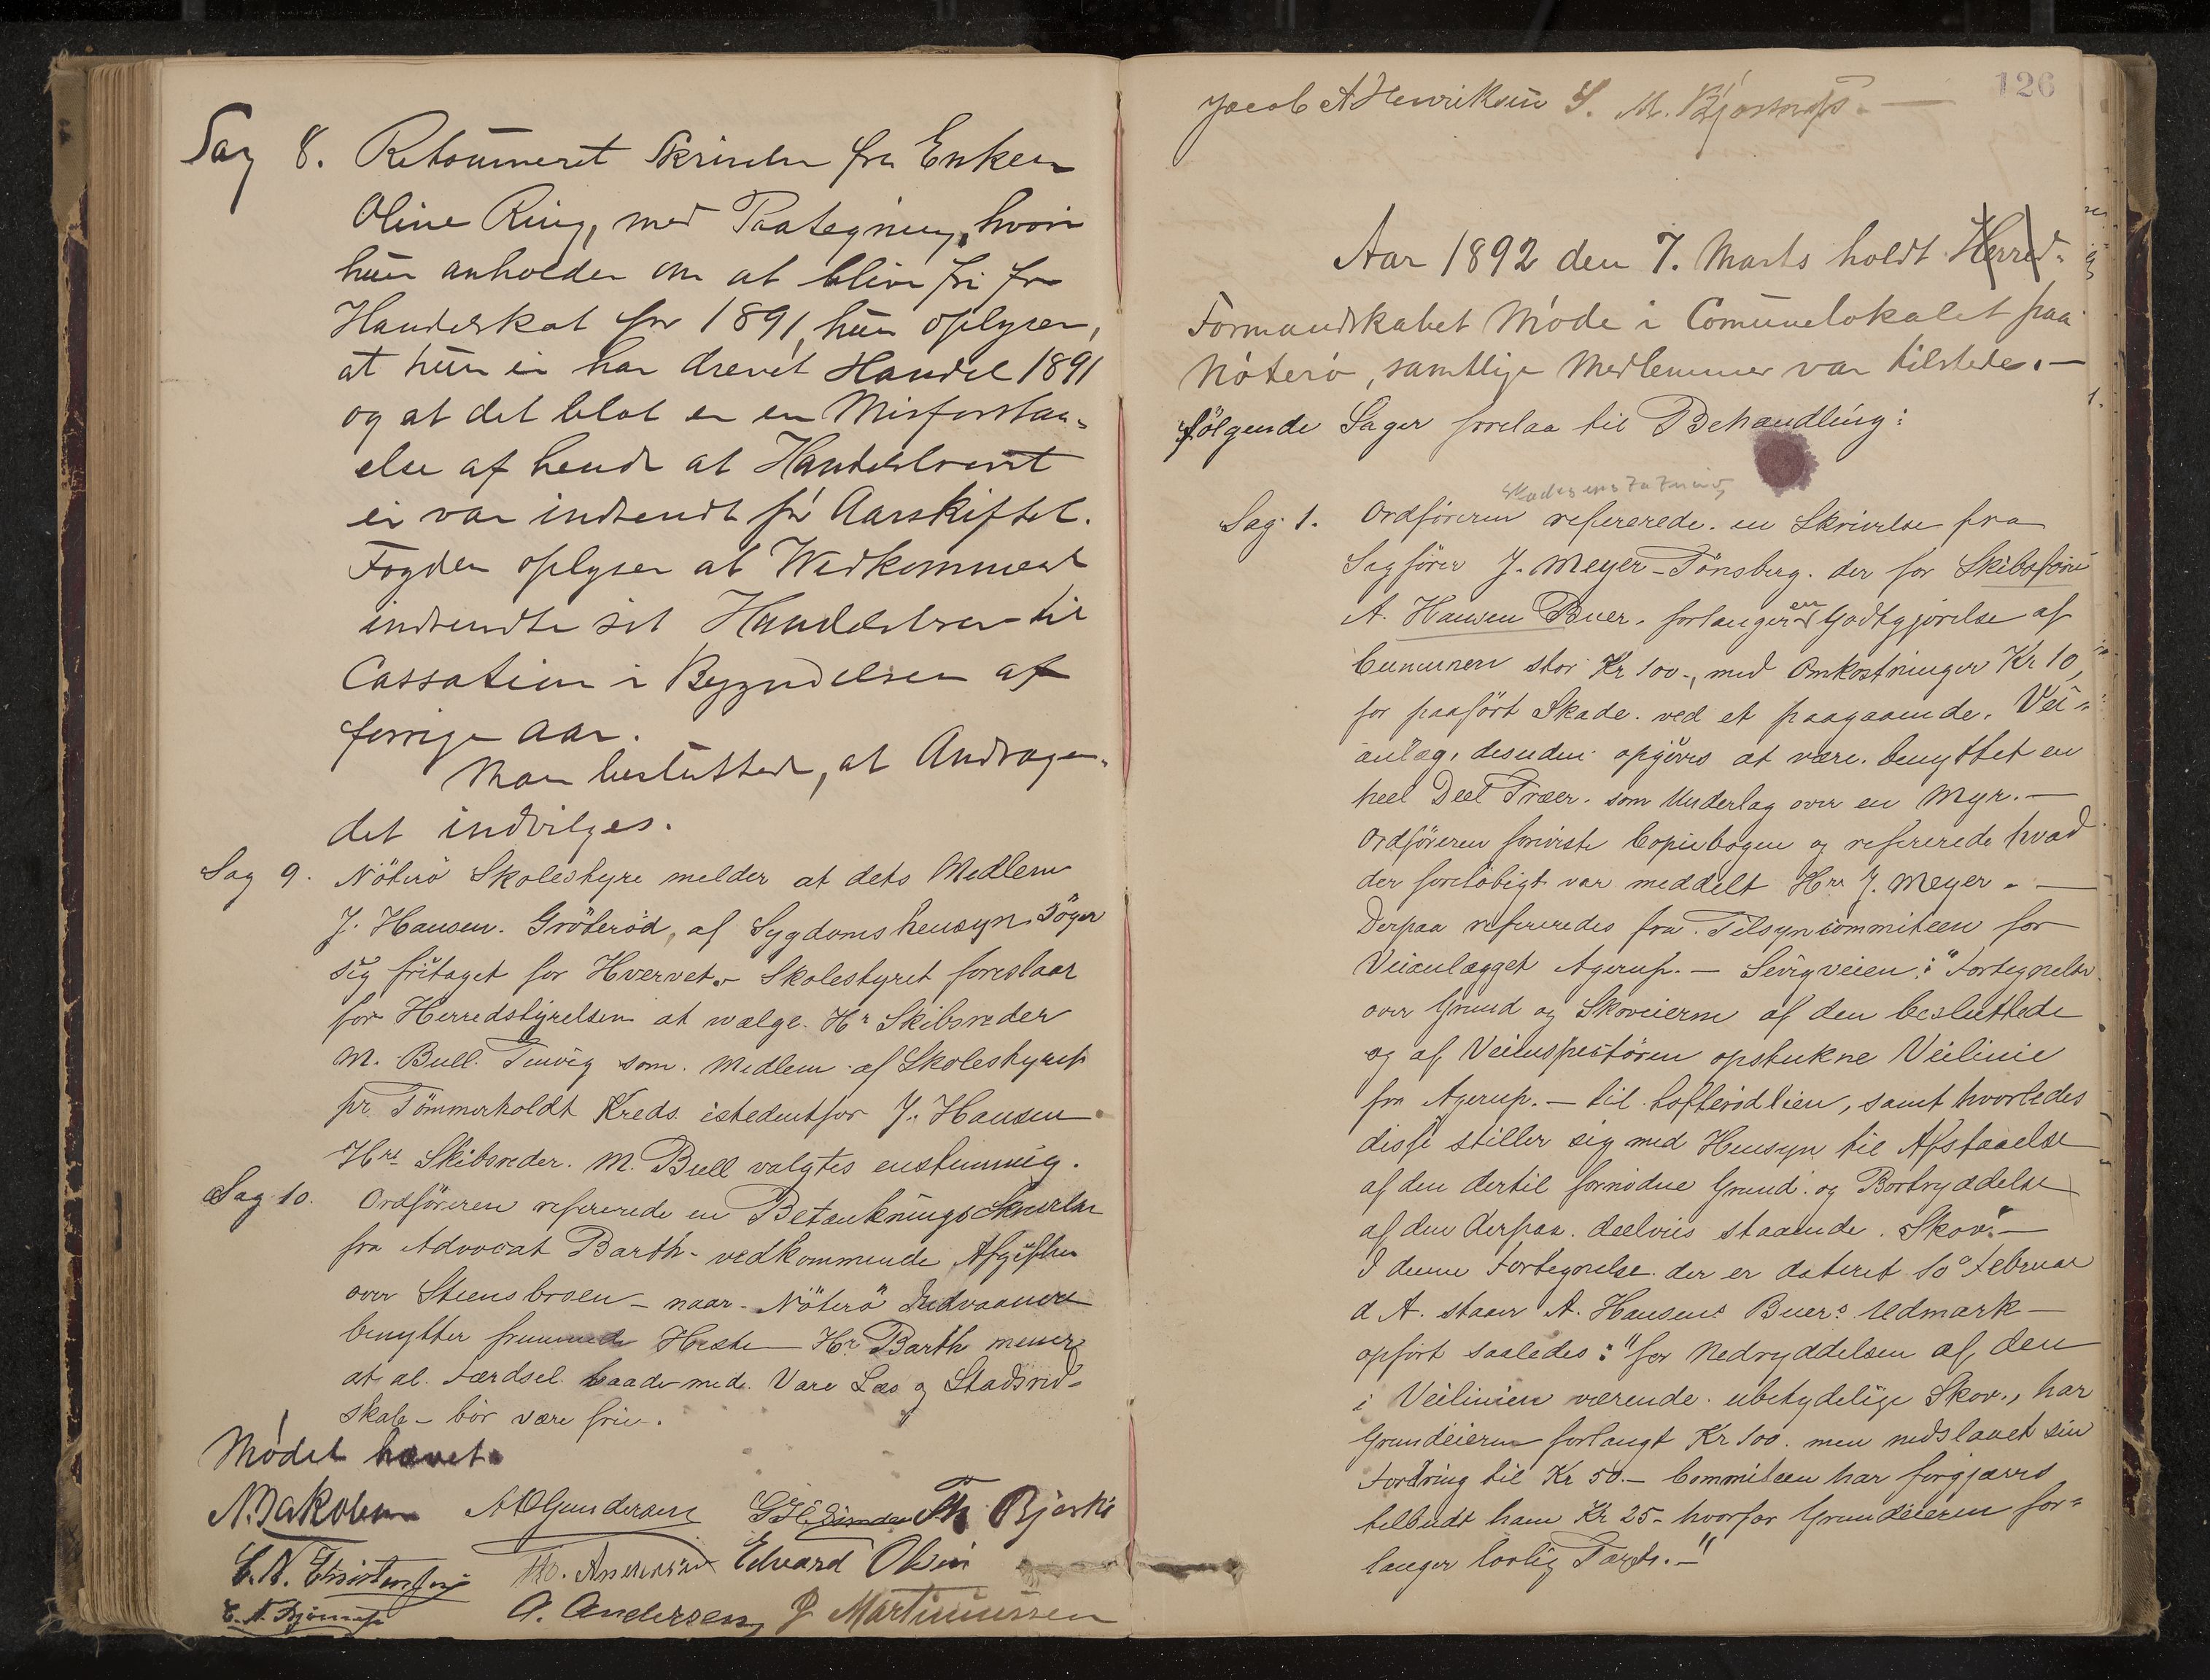 Sag 8. Retourneret Skrivelse fra Enken
Oline Ring, med Paategning, hvori
hun anholder om at blive fri for
Handelskat for 1891, hun oplyser,
at hun ei har drevet Handel 1891
og at det blot er en Misforstaa-
else af hende at Handelsbrevet
ei var indsendt før Aarskiftet.
Fogden oplyser at Vedkommende
indsendte sit Handelsbrev til
Cassation i Begyndelsen af
forrige Aar.
Man besluttede, at Andragen-
det indvilges.
Sag 9. Nöterö Skolestyre melder at dets Medlem
J. Hansen. Gröteröd, af Sygdomshensyn söger
sig fritaget for Hvervet. Skolestyret foreslaar
for Herredstyrelsen at vælge Hr Skibsreder
M. Bull. Tenvig som Medlem af Skolestyret
for Tömmerholdt Kreds istedentfor J. Hansen
Hrr Skibsreder. M. Bull valgtes enstemmig.
Sag 10. Ordföreren refererede en Betænkningsskrivelse
fra Advocat Barth - vedkommende Afgiften
over Steensbroen - naar Nöterö Indvaanere
benytter fremmede Heste - Hr Barth mener
at al Færdsel baade med Vare Læs og Stadsred-
skab - bör være frie.
Mødet hævet.
N. Jakobsen A O Gundersen Th Bjerke
C. N. Christensen Th. Andersen Edvard Olsen
A. Andersen P Martinussen
126
Jacob A Henriksen S. M. Bjørnø
Aar 1892 den 7. Marts holdt Herred-
Formandskabet Møde i Comunelokalet paa
Nöterö, samtlige Medlemmer var tilstede. -
følgende Sager forelaa til Behandling:
Skadeserstatning
Sag 1. Ordföreren refererede en Skrivelse fra
Sagförer J. Meyer - Tönsberg. der for Skibsförer
A. Hansen Buer. forlanger en Godtgjörelse af
Comunen stor Kr 100-, med Omkostninger Kr 10,
for paaført Skade ved et paagaaende Vei-
anlæg, desuden opgives at være benyttet en
heel Deel Træer som Underlag over en Myr. -
Ordföreren foreviste Copiebogen og refererede hvad
der foreløbigt var meddelt Hrr J. Meyer. -
Derpaa refereredes fra Tilsyncommiteen for
Veianlægget Agerup. - Sevigveien: "Fortegnelse
over Grund og Skoveierne af den besluttede
og af Veiinspectören opstukne Veilinie
fra Agerup. - til Tofteródlien, samt hvorledes
disse stiller sig med Hensyn til Afstaaelse
af den dertil fornödne Grund og Bortryddelse
af den derpaa deelviis staaende Skov." -
I denne Fortegnelse der er dateret 10de Februar
d A. staar A. Hansens Buers Udmark -
opført saaledes: "for Nedryddelsen af den
i Veilinien værende ubetydelige Skov, har
Grundeieren forlangt Kr 100. men nedslaaet sin
Fordring til Kr 50. - Commiteen har forgjæves
tilbudt ham Kr 25 - hvorfor Grundeieren for-
langer lovlig Taxt. -"